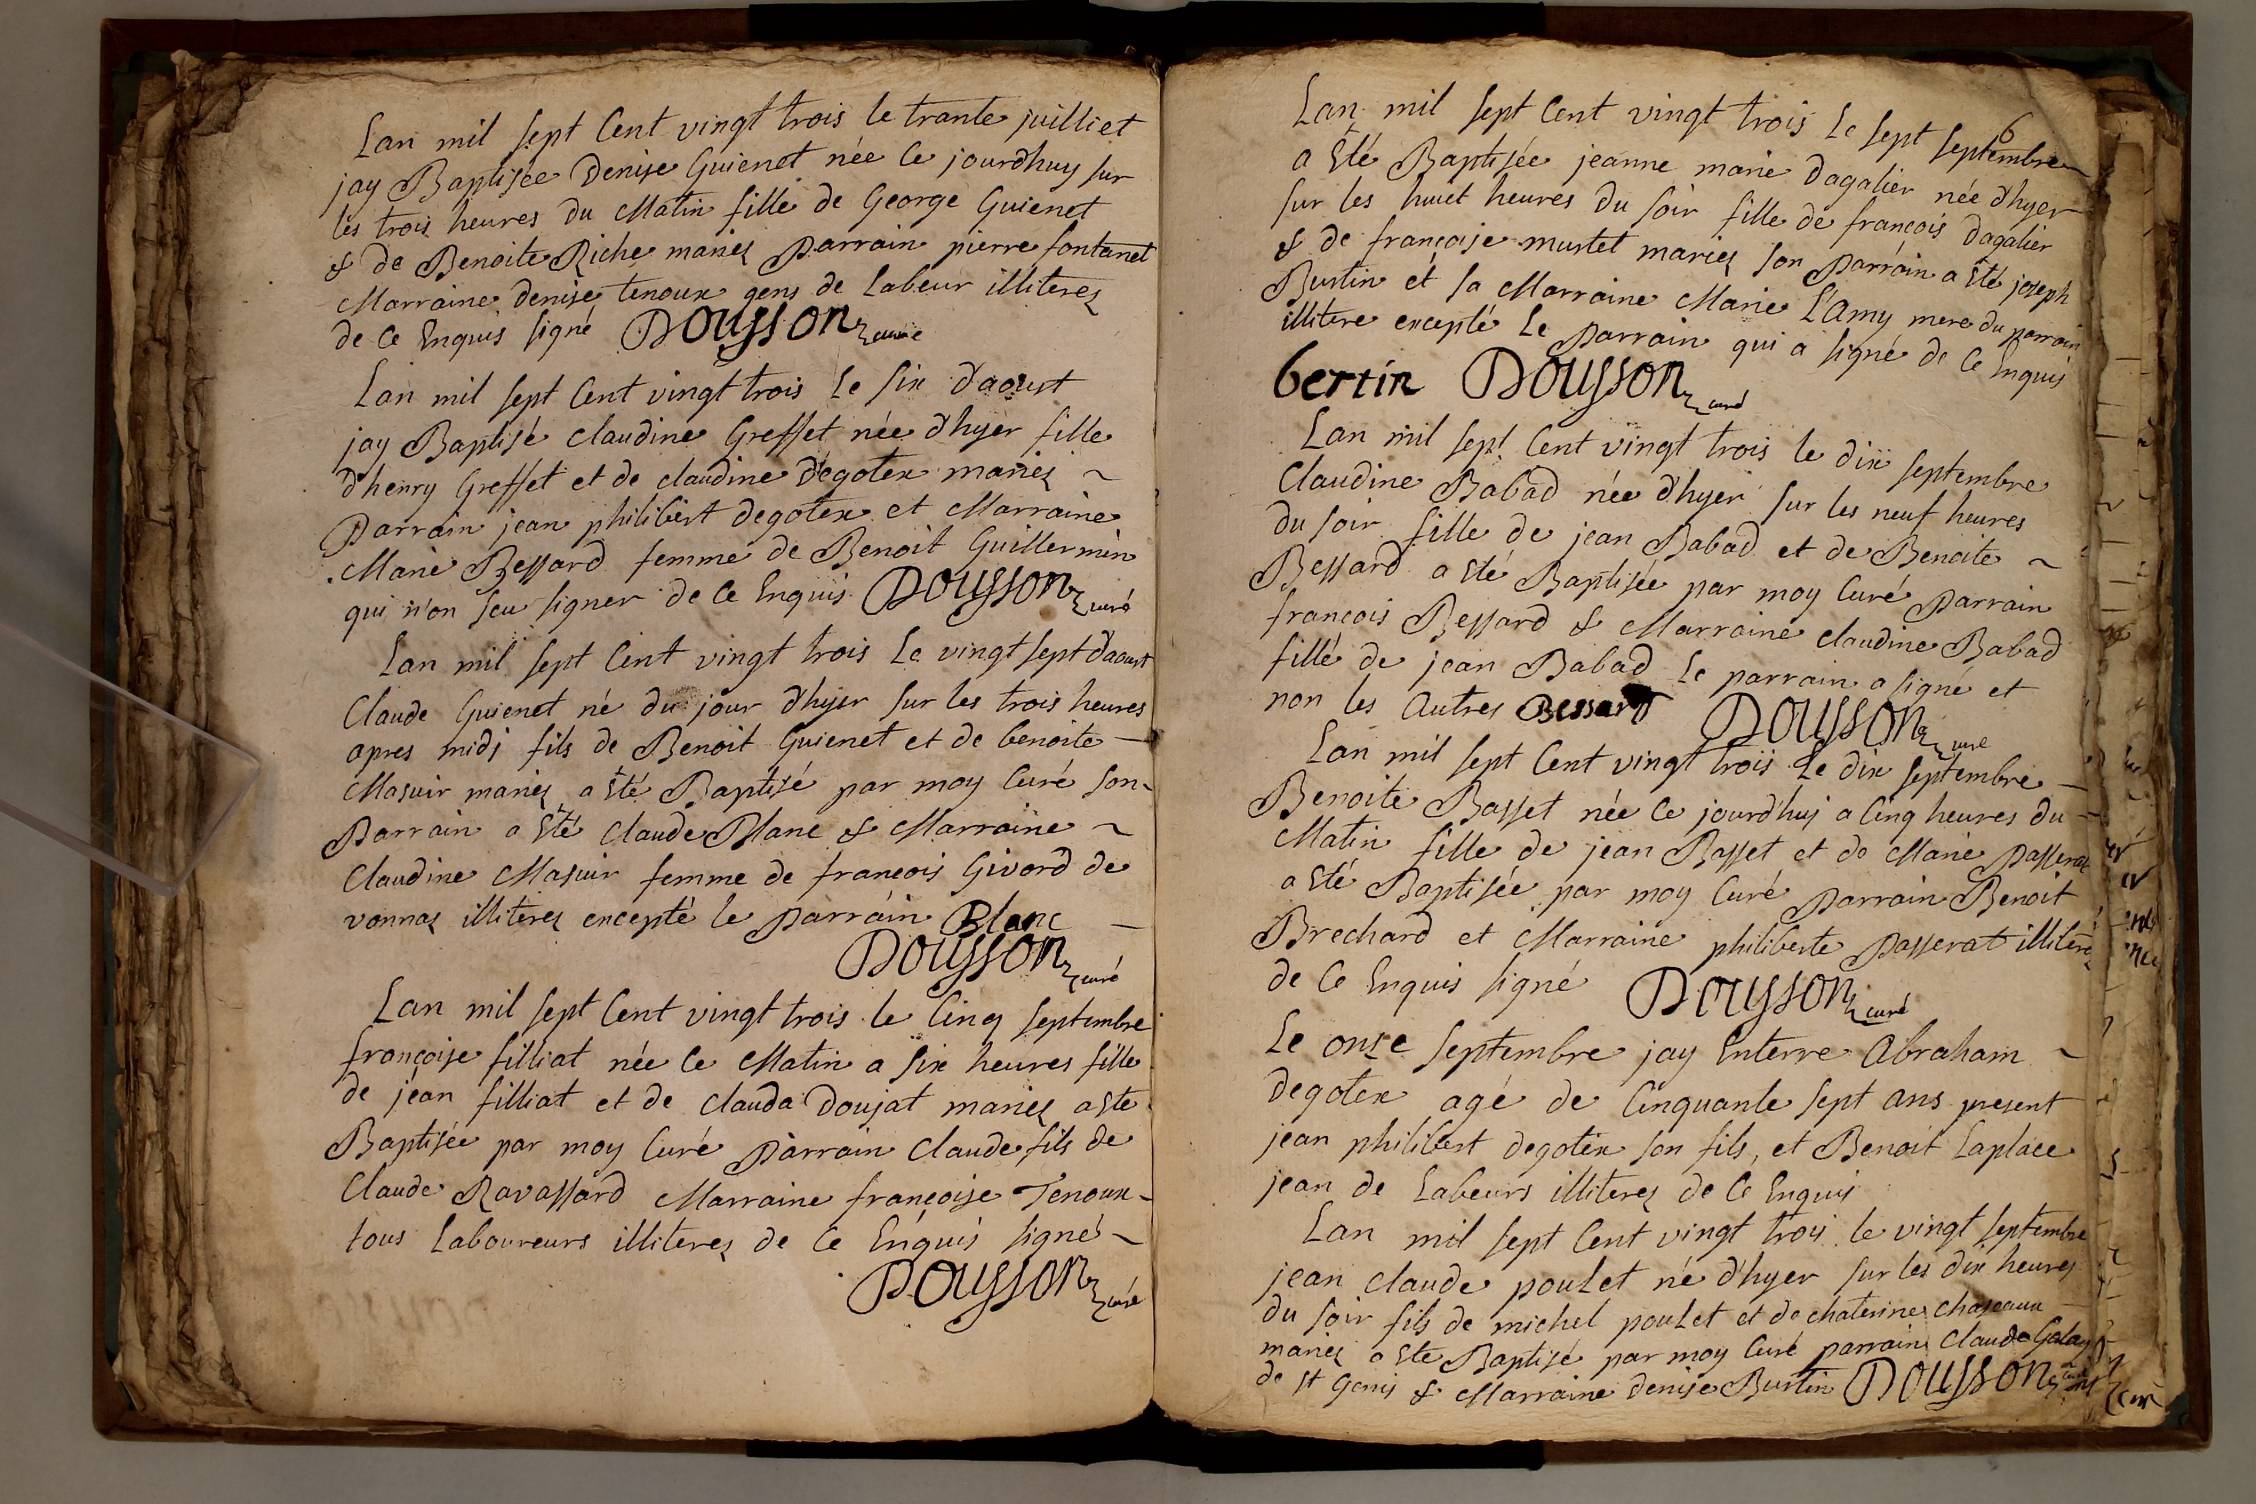 Lan mil sept Cent vingt trois le trante juilliet
jay Baptisée Denise Guienet née Ce jourdhuy sur
les trois heures du Matin fille de George Guienet
& de Benoite Riche mariez Parrain pierre fontanet
Marraine denise tenoux gens de Labeur illiterez
de Ce Enquis signé Dousson curé
Lan mil sept Cent vingt trois Le six d'aoust
jay Baptisé claudine Greffet née d'hyer fille
d'henry Greffet et de claudine degotex mariez ~
Parrain jean philibert degotex et Marraine
Marie Bessard femme de Benoit Guillermin
qui n'on seu signer de Ce Enquis Dousson curé
Lan mil sept Cent vingt trois Le vingt sept daoust
Claude Guienet né du jour d'hyer sur les trois heures
apres midi fils de Benoit Guienet et de benoite —
Masuir mariez a Eté Baptisé par moy Curé son
Parrain a Eté Claude Blanc & Marraine ~
Claudine Masuir femme de francois Givord de
vonnas illiterez excepté le Parrain Blanc —
Dousson curé
Lan mil sept Cent vingt trois le Cinq septembre
françoise filliat née Ce Matin a six heures fille
de jean filliat et de Clauda Doujat mariez a Eté
Baptisée par moy Curé Parrain Claude fils de
Claude Ravassard Marraine françoise Tenoux -
tous Laboureurs illiterez de Ce Enquis signé ~
Dousson curé
6
Lan mil sept Cent vingt trois Le sept septembre
a Eté Baptisée jeanne marie Dagalier née d'hyer
sur les huict heures du soir fille de françois dagalier
& de françoise mustet mariez son Parrain a Eté joseph
Burtin et sa Marraine Marie L'amy mere du parrain
illitere excepté Le Parrain qui a signé de Ce Enquis
bertin Dousson curé
Lan mil sept Cent vingt trois le dix septembre
Claudine Babad née d'hyer sur les neuf heures
du soir fille de jean Babad et de Benoite ~
Bessard a Eté Baptisée par moy Curé Parrain
francois Bessard & Marraine claudine Babad
fille de jean Babad Le parrain a signé et
non les Autres Bessard Dousson curé
Lan mil sept Cent vingt trois Le dix septembre
Benoite Basset née Ce jourdhuj a Cinq heures du
Matin fille de jean Basset et de Marie Passerat
a Eté Baptisée par moy Curé Parrain Benoit
Brechard et Marraine philiberte Passerat illiterez
de Ce Enquis signé Dousson curé
Le onze septembre jay Enterre Abraham ~
degotex agé de Cinquante sept ans present
jean philibert degotex son fils, et Benoit Laplace
jean de Labeurs illiterez de Ce Enquis
Lan mil sept Cent vingt trois le vingt septembre
jean claude poulet né d'hyer sur les dix heures
du soir fils de michel poulet et de chaterine chaseaux
mariez a Eté Baptisé par moy Curé parrain Claude
de st Genis & Marraine denise Burtin Dousson curé